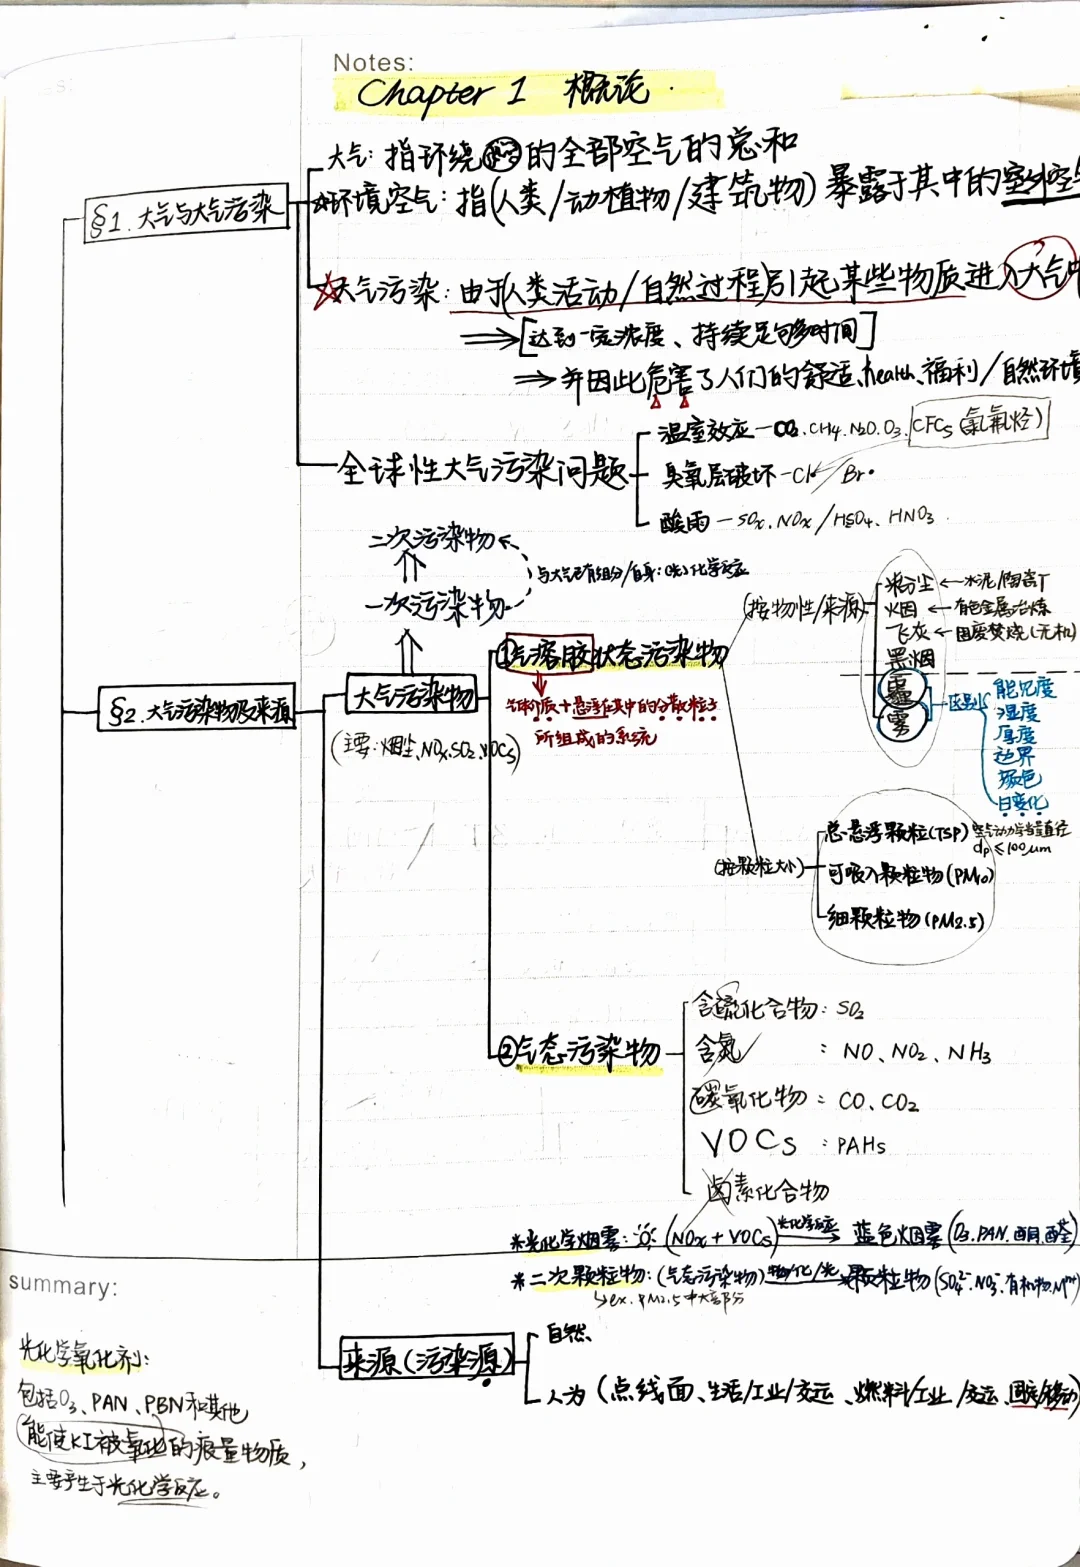 Notes:
Chapter 1 概论
§1.大气与大气污染
大气：指环绕地球的全部空气的总和
☆环境空气：指(人类/动植物/建筑物)暴露于其中的室外空气
☆大气污染：由于(人类活动/自然过程)引起某些物质进入大气中
⇒[达到一定浓度、持续足够多时间]
⇒并因此危害了人们的舒适、health、福利/自然环境
全球性大气污染问题
温室效应—CO2.CH4.N2O.O3.CFCs(氯氟烃)
臭氧层破坏—Cl•/Br•
酸雨—SOx.NOx/HSO4、HNO3.
二次污染物
与大气已有组分/自身：(光)化学反应
一次污染物
§2.大气污染物及来源
大气污染物
(主要：烟尘、NOx.SO2.VOCs)
①气溶胶状态污染物
气体介质+悬浮在其中的分散粒子
所组成的系统
(按物性/来源)
粉尘←水泥/陶瓷厂
烟←有色金属冶炼
飞灰←固废焚烧(无机)
黑烟
霾
雾
区别
能见度
湿度
厚度
边界
颜色
日变化
(按颗粒大小)
总悬浮颗粒(TSP) 空气动力学当量直径
dp≤100μm
可吸入颗粒物(PM10)
细颗粒物(PM2.5)
②气态污染物
含硫化合物：SO2
含氮 ：NO、NO2、NH3
碳氧化物：CO、CO2
VOCs：PAHs
卤素化合物
*光化学烟雾：(NOx+VOCs) 光化学反应→ 蓝色烟雾(O3.PAN.酮.醛)
*二次颗粒物：(气态污染物) 物/化/光→颗粒物(SO4²⁻.NO3⁻.有机物.Mⁿ⁺)
↳ex.PM2.5中大部分
来源(污染源)
自然、
人为(点线面、生活/工业/交运、燃料/工业/交运、固定/移动)
summary:
光化学氧化剂：
包括O3、PAN、PBN和其他
能使KI被氧化的痕量物质，
主要产生于光化学反应。